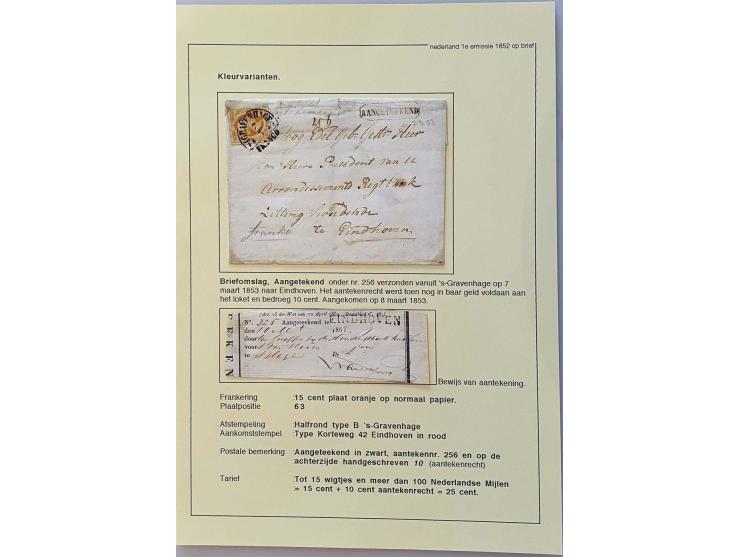 nederland 1e emissie 1852 op brief
Kleurvarianten.
AANGETEEKEND
Hoog Edel Gestr Heer
den Heere President van de
Arrondissements Regtbank
Zitting houdende
franko te Eindhoven.
Briefomslag, Aangetekend onder nr. 256 verzonden vanuit 's-Gravenhage op 7
maart 1853 naar Eindhoven. Het aantekenrecht werd toen nog in baar geld voldaan aan
het loket en bedroeg 10 cent. Aangekomen op 8 maart 1853.
No. 325 Aangeteekend te EINDHOVEN
den
door
voor
te
Bewijs van aantekening.
Frankering :15 cent plaat oranje op normaal papier.
Plaatpositie 63
Afstempeling :Halfrond type B 's-Gravenhage
Aankomststempel :Type Korteweg 42 Eindhoven in rood
Postale bemerking :Aangeteekend in zwart, aantekennr. 256 en op de
:achterzijde handgeschreven 10 (aantekenrecht)
Tarief :Tot 15 wigtjes en meer dan 100 Nederlandse Mijlen
:= 15 cent + 10 cent aantekenrecht = 25 cent.